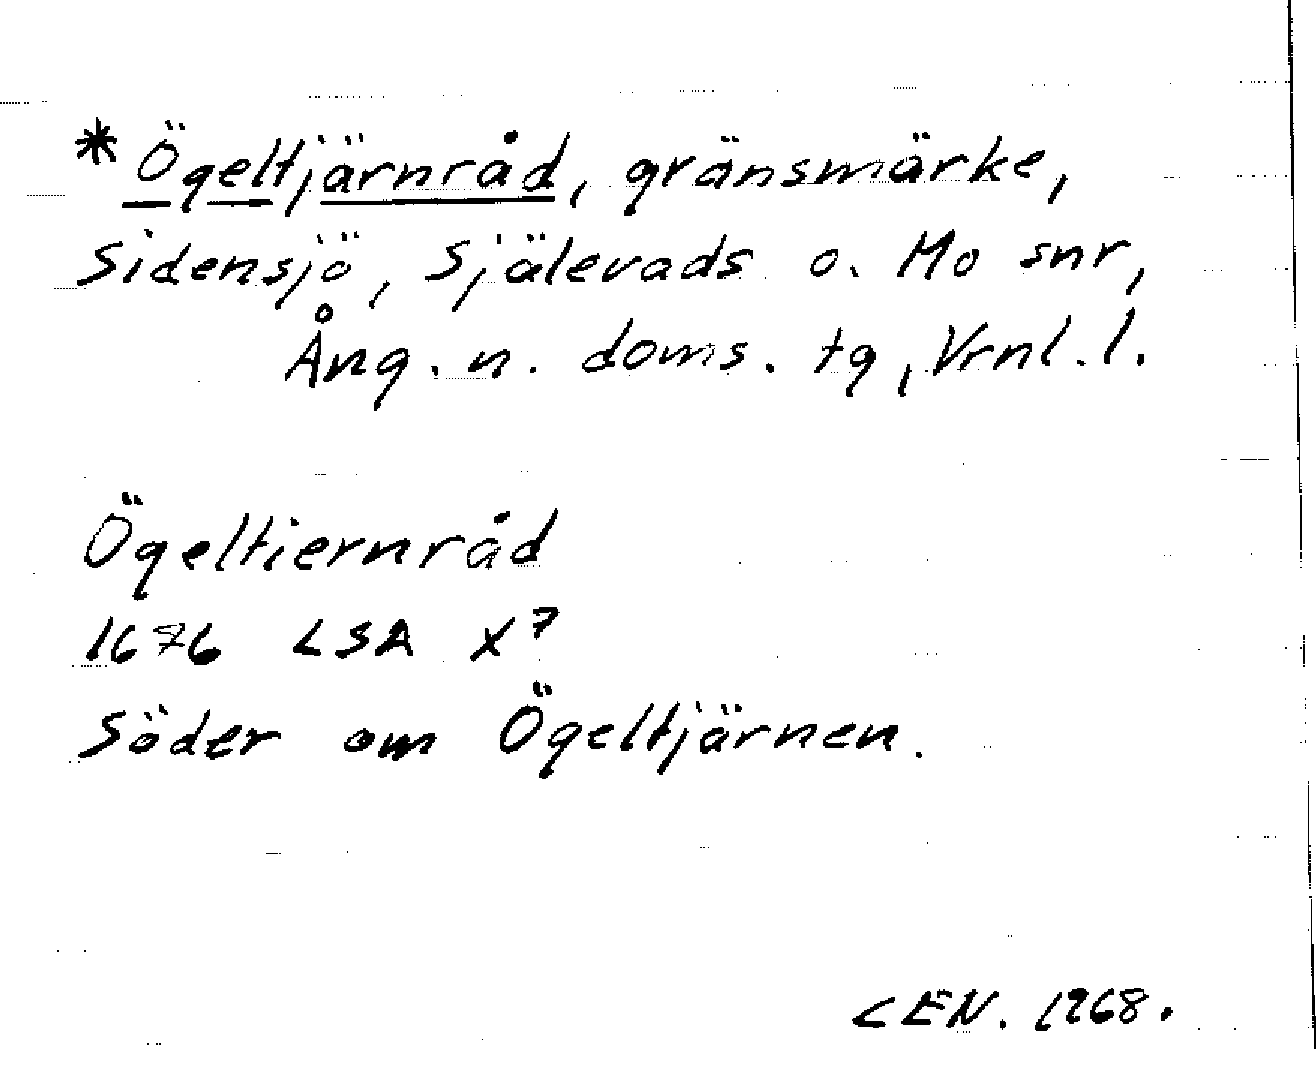 * Ögeltjärnråd, gränsmärke,
Sidensjö, Själevads o. Mo snr,
Ång. n. doms. tg, Vrnl. l.
Ögeltiernråd
1676 LSA X7
Söder om Ögeltjärnen.
LEN. 1968.